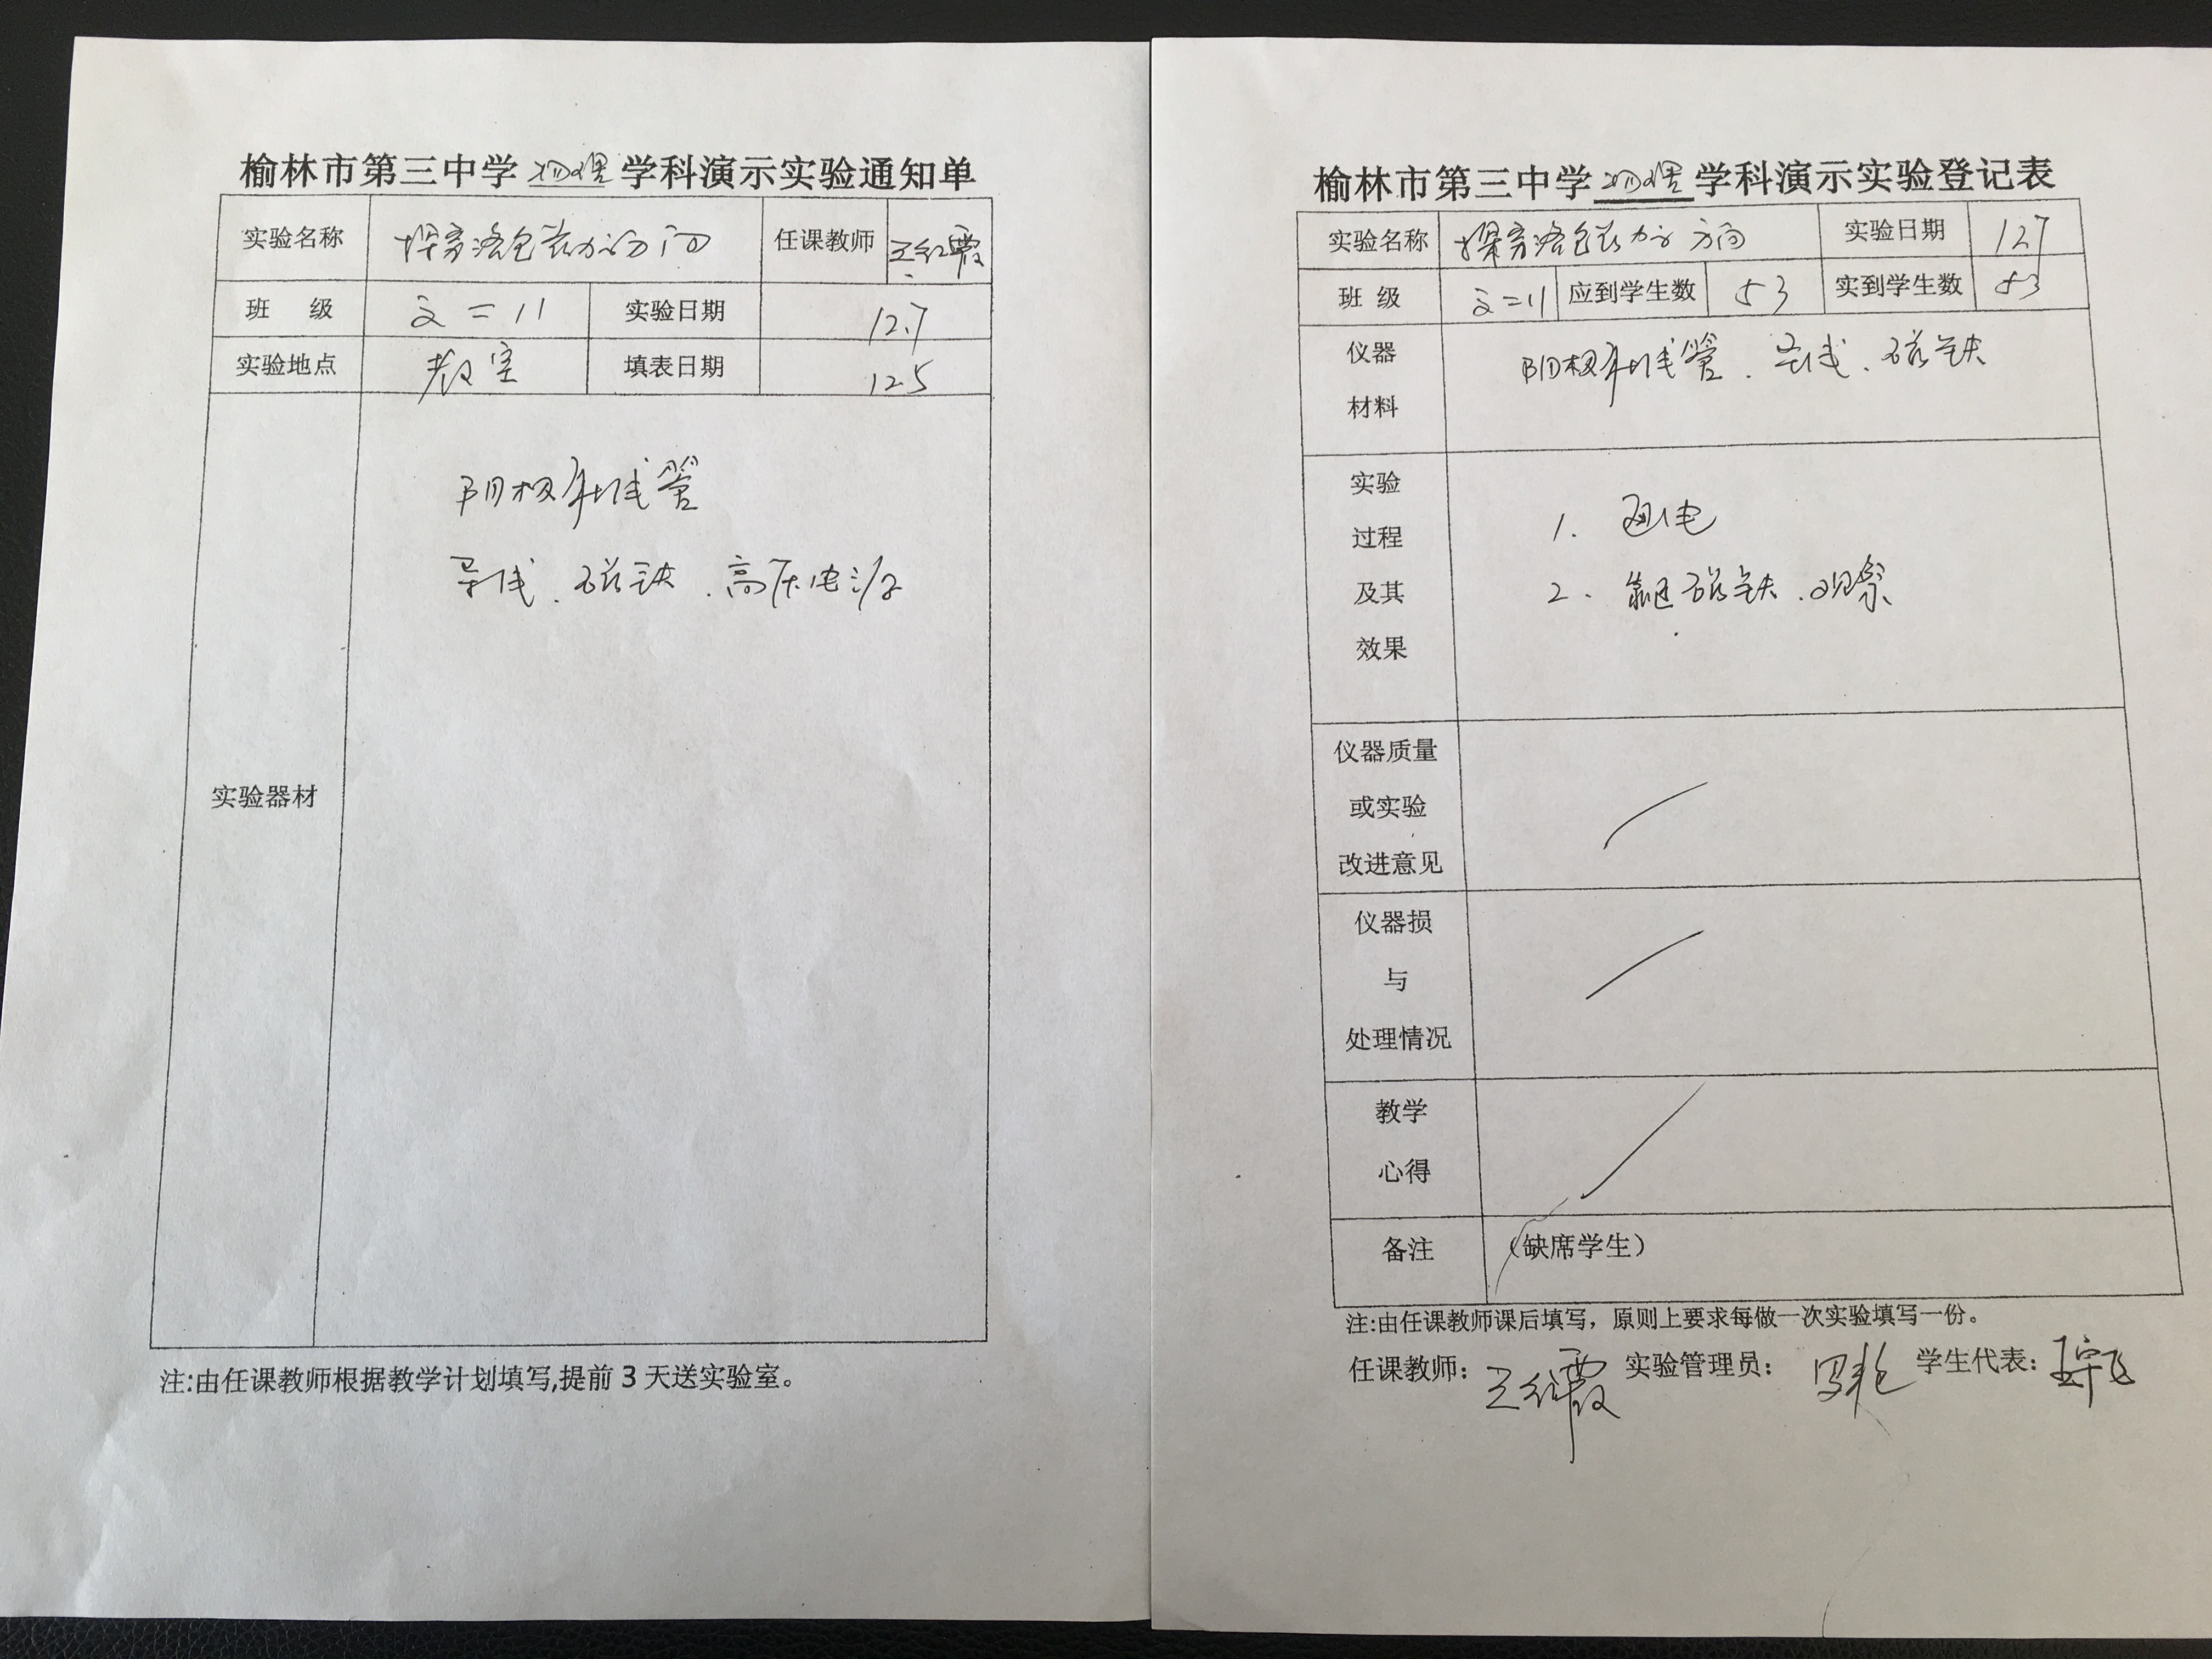 榆林市第三中学 物理 学科演示实验通知单
实验名称 探究洛仑兹力的方向 任课教师 王红霞
班 级 高二11 实验日期 12.7
实验地点 教室 填表日期 12.5
实验器材
阴极射线管
导线、磁铁、高压电源
注:由任课教师根据教学计划填写,提前3天送实验室。
榆林市第三中学 物理 学科演示实验登记表
实验名称 探究洛仑兹力的方向 实验日期 12.7
班 级 高二11 应到学生数 53 实到学生数 53
仪器
材料
阴极射线管、导线、磁铁
实验
过程
及其
效果
1. 通电
2. 靠近磁铁、观察
仪器质量
或实验
改进意见
仪器损
与
处理情况
教学
心得
备注 (缺席学生)
注:由任课教师课后填写，原则上要求每做一次实验填写一份。
任课教师: 王红霞 实验管理员: 学生代表: